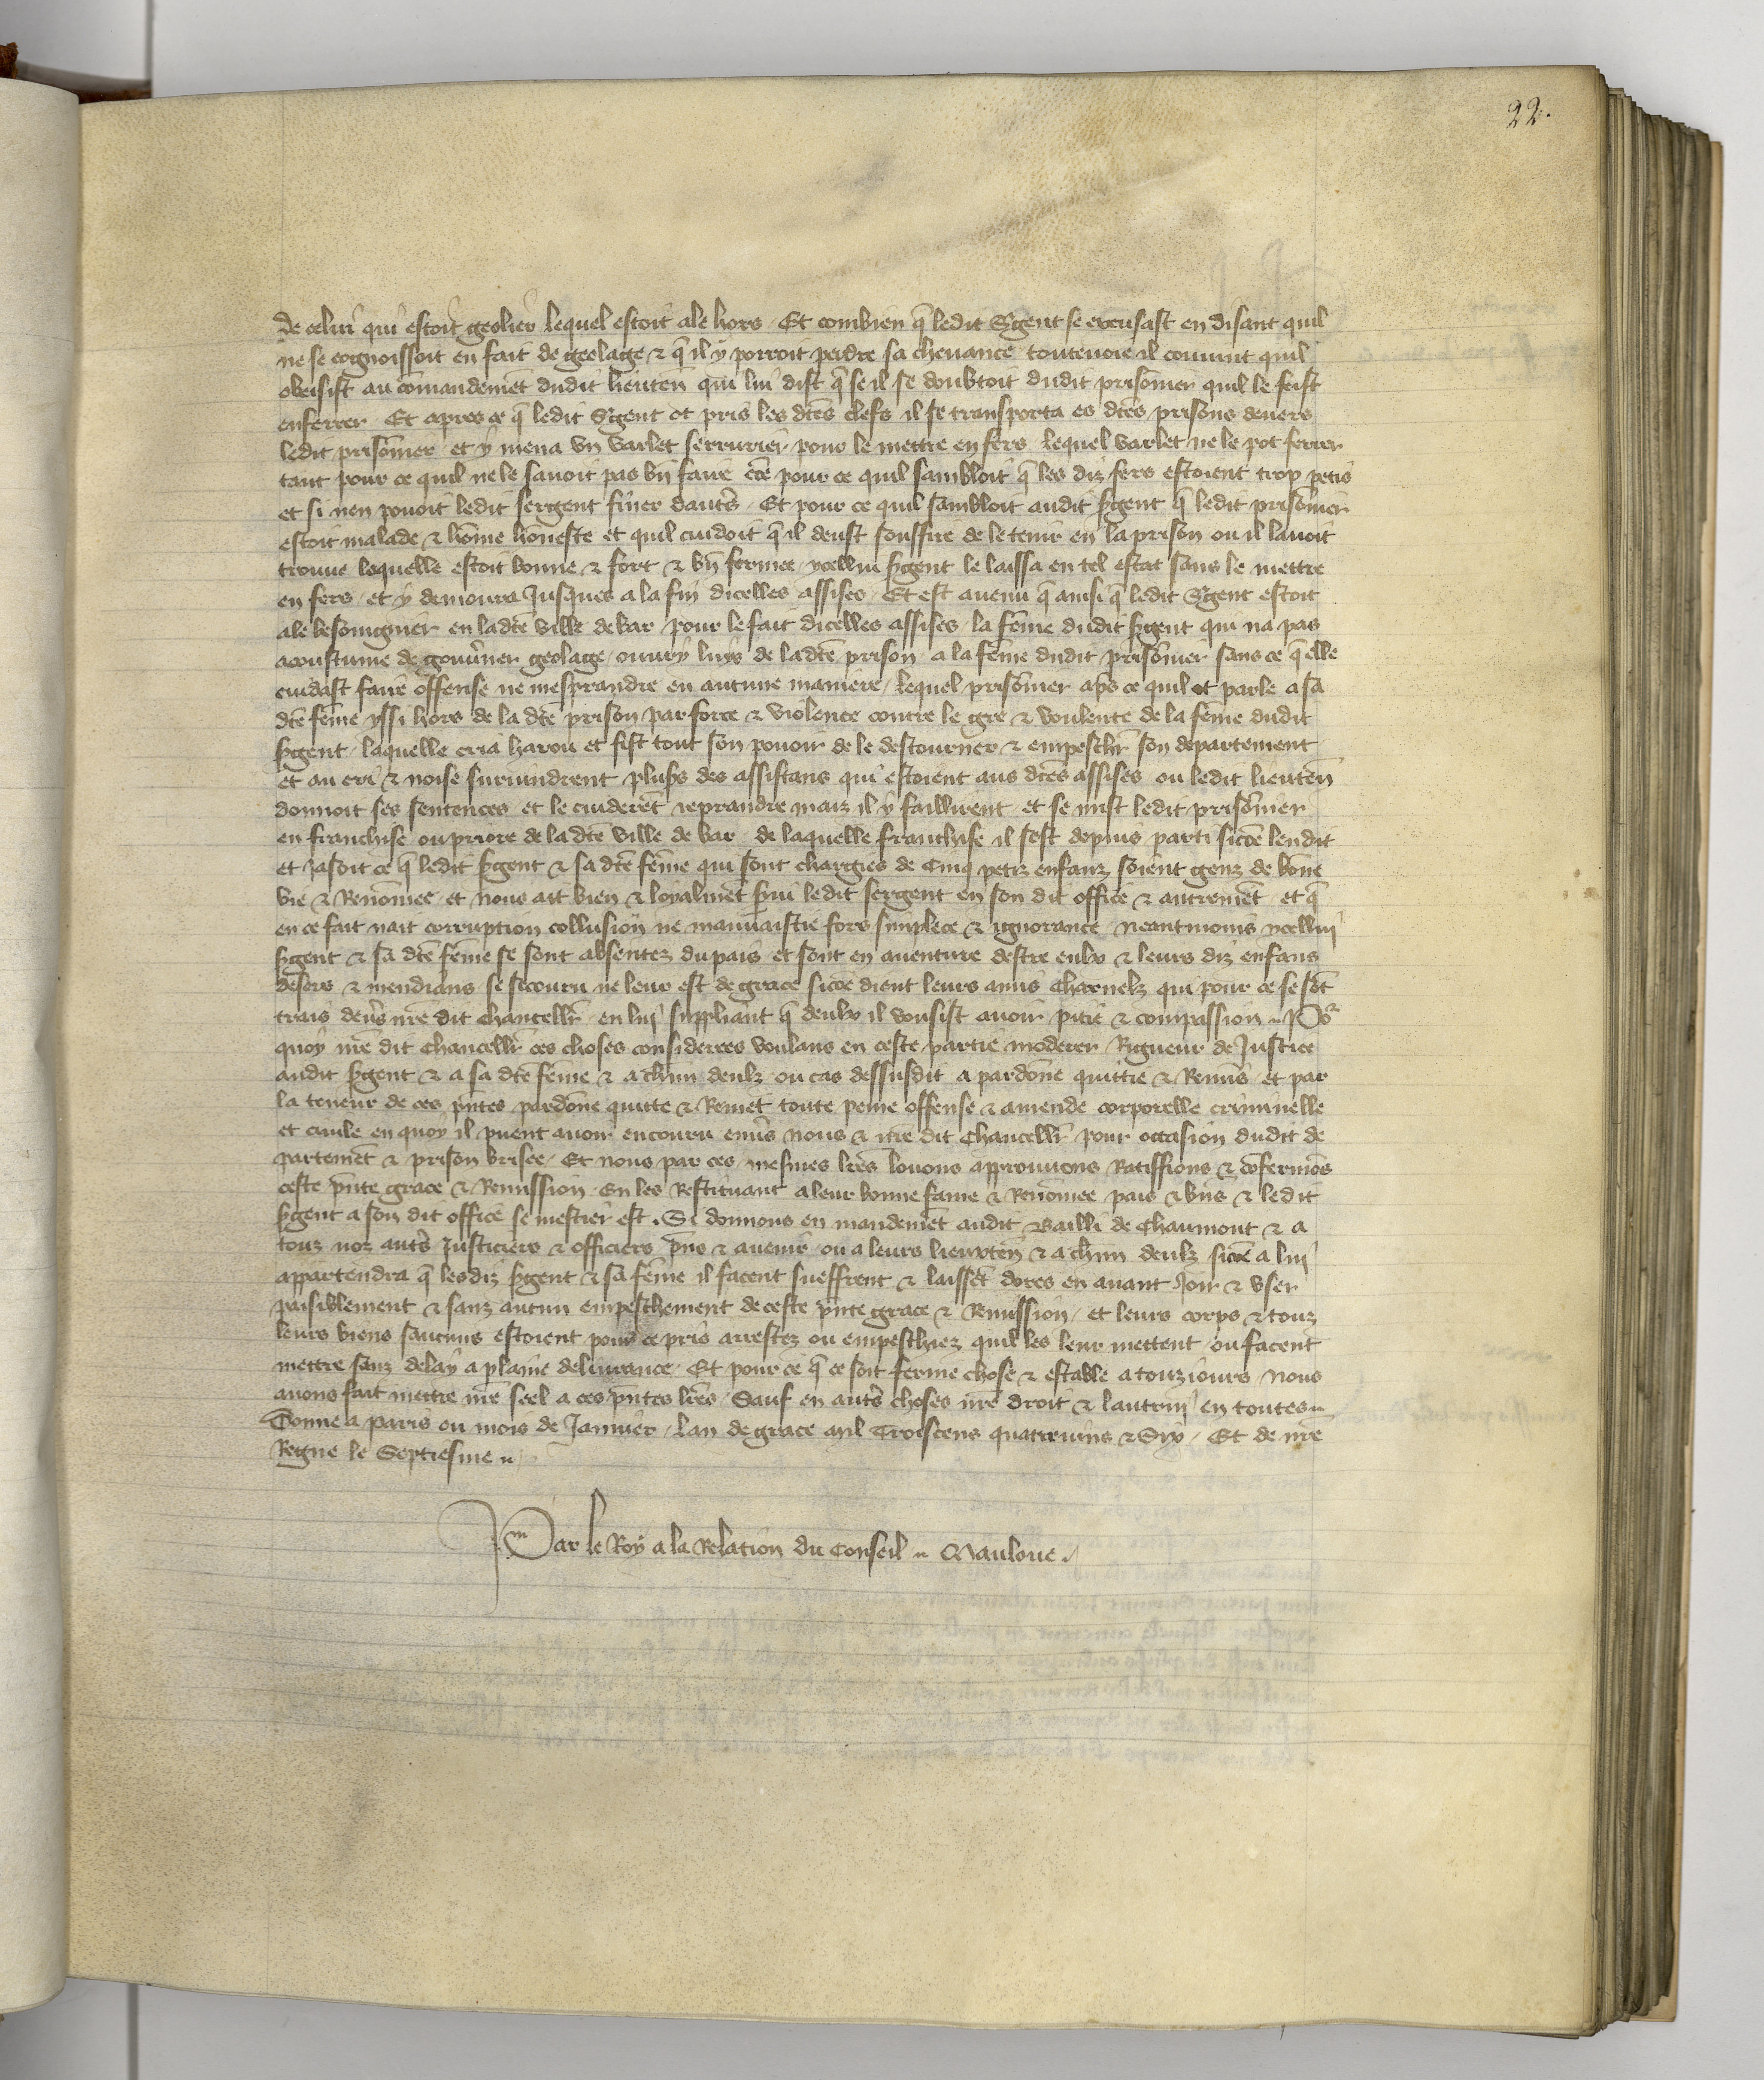 22.
de celui qui estoit geolier lequel estoit ale hors. Et combien q̄ ledit Sgent se excusast en disant quil
ne se cognoissoit en fait de geolage & q̄ il y porroit perdre sa chevance toutevoie il convint quil
obeisist au cōmandemēt dudit lieuten̄ qui lui dist q̄ se il se doubtoit dudit prisōnier quil le feist
enferrer Et apres ce q̄ ledit Sgent ot pris les dc̄es clefs il se transporta es dc̄es prisons devers
ledit prisōnier et y mena un varlet serrurier pour le mettre en fers lequel varlet ne le pot ferrer
tant pour ce quil ne le savoit pas bn̄ faire cōe pour ce quil sambloit q̄ les diz fers estoient trop petis
et si nen povoit ledit sergent finer daut̄s. Et pour ce quil sambloit audit sgent q̄ ledit prisōnier
estoit malade & hōme hōneste et quil cuidoit q̄ il deust souffire de le tenir en la prison ou il lavoit
trouve lequelle estoit bonne & fort & bn̄ fermee ycellui sgent le laissa en tel estat sans le mettre
en fers et y demoura Jusques a la fin dicelles assises. Et est avenu q̄ ainsi q̄ ledit Sgent estoit
ale besoingner en ladc̄e ville de bar pour le fait dicelles assises la fēme dudit sgent qui na pas
acoustume de gouv̄ner geolage ouvry luys de ladc̄e prison a la fēme dudit prisōnier sans ce q̄ elle
cuidast faire offense ne mesprandre en aucune maniere, lequel prisōnier ap̄s ce quil ot parle a sa
dc̄e fēme yssi hors de la dc̄e prison par force & violence contre le gre & voulente de la fēme dudit
sgent, laquelle cria harou et fist tout son povoir de le destourner & empesch̄r son departement
et au cri & noise survindrent plus̄s des assistans qui estoient aus dc̄es assises ou ledit lieuten̄
donnoit ses sentences et le cuiderēt reprandre maiz il y faillirent et se mist ledit prisōnier
en franchise ou priore de ladc̄e ville de bar de laquelle franchise il sest depuis parti sicōe lendit
et Jasoit ce q̄ ledit sgent & sa dc̄e fēme qui sont chargies de Cinq petiz enfanz soient genz de bōne
vie & Renōmee et nous ait bien & loyalmēt s̄vi ledit sergent en son dit office & autremēt et q̄
en ce fait nait corruption collusion ne mauvaistie fors simplece & ignorance neantmoins ycellui
sgent & sa dc̄e fēme se sont absentez du pais et sont en aventure destre eulx & leurs diz enfans
desers & mendians se secouru ne leur est de grace sicōe dient leurs amis charnelz qui pour ce se sōt
trais dev̄s nr̄e dit Chancell̄r en lui suppliant q̄ deulx il vousist avoir pitie & compassion. Por
quoy nr̄e dit Chancell̄r ces choses considerees voulans en ceste partie moderer Rigueur de Justice
audit sgent & a sa dc̄e fēme & a ch̄un deulz ou cas dessusdit a pardōne quittie & Remis et par
la teneur de ces p̄ntes pardōne quitte & Remet toute peine offense & amende corporelle criminelle
et civile en quoy il puent avoir encouru env̄s nous & nr̄e dit Chancell̄r pour occasion dudit de
partemēt & prison brisee. Et nous par ces mesmes lr̄es louons approuvons Ratiffions & cōfermōs
ceste p̄nte grace & Remission. En les Restituant a leur bonne fame & Renōmee pais & bn̄s & ledit
sgent a son dit office se mestier est. Si donnons en mandemēt audit Bailli de Chaumont & a
touz noz aut̄s Justiciers & officiers p̄ns & avenir ou a leurs lieuxten̄ & a ch̄un deulz sicōe a lui
appartendra q̄ lesdiz sgent & sa fēme il facent sueffrent & laissēt dores en avant Joir & user
paisiblement & sanz aucun empeschement de ceste p̄nte grace & Remission, et leurs corps & touz
leurs biens saucuns estoient pour ce pris arrestez ou empeschiez quil les leur mettent ou facent
mettre sanz delay a plaine delivrance. Et pour ce q̄ ce soit ferme chose & estable a touz iours Nous
avons fait mettre nr̄e seel a ces p̄ntes lr̄es. Sauf en aut̄s choses nr̄e droit & lautrui en toutes.
Donne a Paris ou mois de Janvier lan de grace mil Troiscens quatrevins & Dix. Et de nr̄e
Regne le Septiesme.
Par le Roy a la Relation du Conseil. Mauloue.